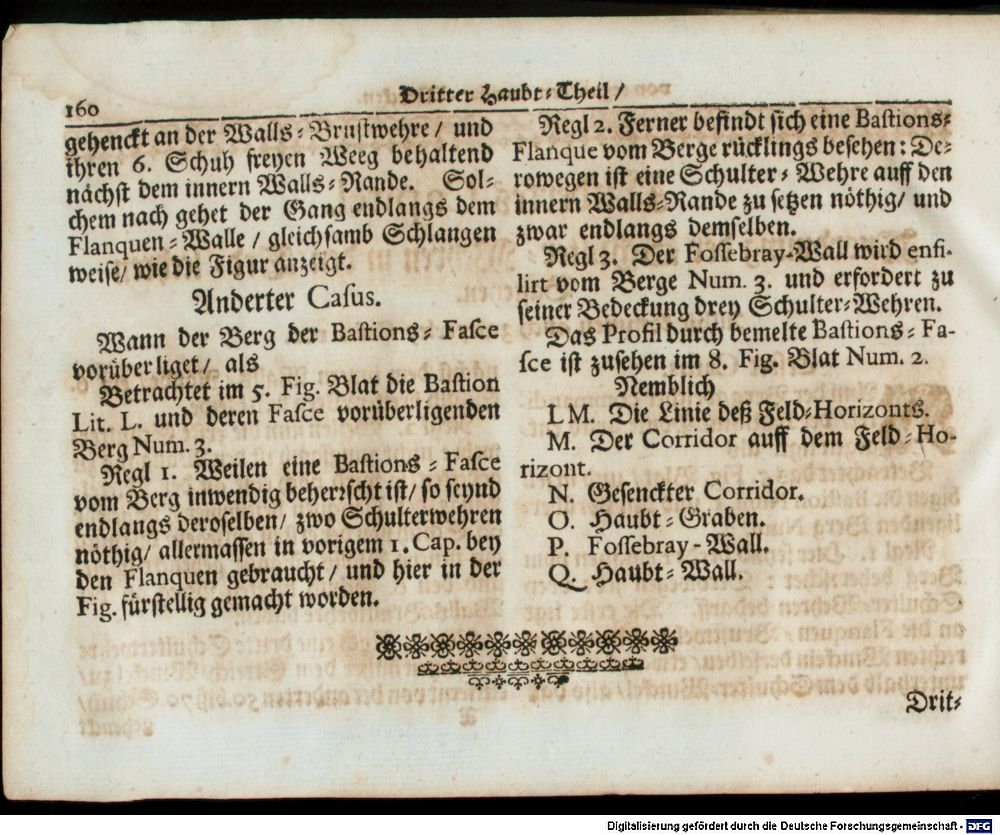 160
Dritter Haubt-Theil /
gehenckt an der Walls-Brustwehre / und
ihren 6. Schuh freyen Weeg behaltend
nächst dem innern Walls-Rande. Sol-
chem nach gehet der Gang endlangs dem
Flanquen-Walle / gleichsamb Schlangen
weise / wie die Figur anzeigt.
Anderter Casus.
Wann der Berg der Bastions-Fasce
vorüberliget / als
Betrachtet im 5. Fig. Blat die Bastion
Lit. L. und deren Fasce vorüberligenden
Berg Num. 3.
Regl 1. Weilen eine Bastions-Fasce
vom Berg inwendig beherrscht ist / so seynd
endlangs deroselben / zwo Schulterwehren
nöthig / allermassen in vorigem 1. Cap. bey
den Flanquen gebraucht / und hier in der
Fig. fürstellig gemacht worden.
Regl 2. Ferner befindt sich eine Bastions-
Flanque vom Berge rücklings besehen: De-
rowegen ist eine Schulter-Wehre auff den
innern Walls-Rande zu setzen nöthig / und
zwar endlangs demselben.
Regl 3. Der Fossebray-Wall wird enfi-
lirt vom Berge Num. 3. und erfordert zu
seiner Bedeckung drey Schulter-Wehren.
Das Profil durch bemelte Bastions-Fa-
sce ist zusehen im 8. Fig. Blat Num. 2.
Nemblich
L M. Die Linie deß Feld-Horizonts.
M. Der Corridor auff dem Feld-Ho-
rizont.
N. Gesenckter Corridor.
O. Haubt-Graben.
P. Fossebray-Wall.
Q. Haubt-Wall.
Drit-
Digitalisierung gefördert durch die Deutsche Forschungsgemeinschaft - DFG